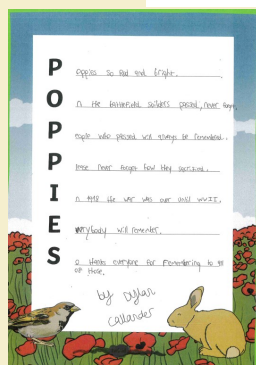 P oppies so red and bright.
O n the battlefield soilders passed, never
P eople who passed will always be remembered.
P lease never forget how they
I n 1918 the war was over until WWII.
E verybody will remember.
S o thanks everyone for remembering to
of those.
by Dylan
Callander